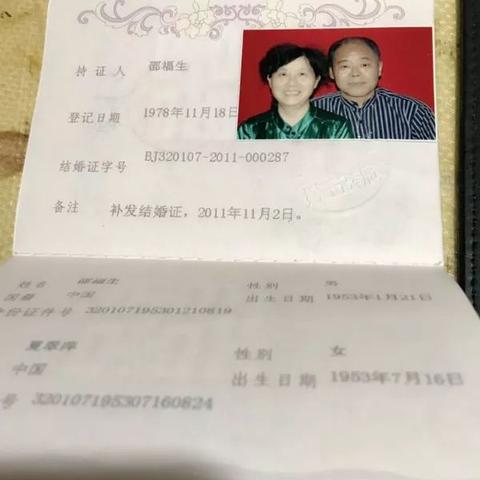 持证人 邵福生
登记日期 1978年11月18日
结婚证字号 BJ320107-2011-000287
备注 补发结婚证，2011年11月2日。
姓名 邵福生 性别 男
国籍 中国 出生日期 1953年1月21日
身份证件号 320107195301210819
夏翠萍 性别 女
中国 出生日期 1953年7月16日
号 320107195307160824